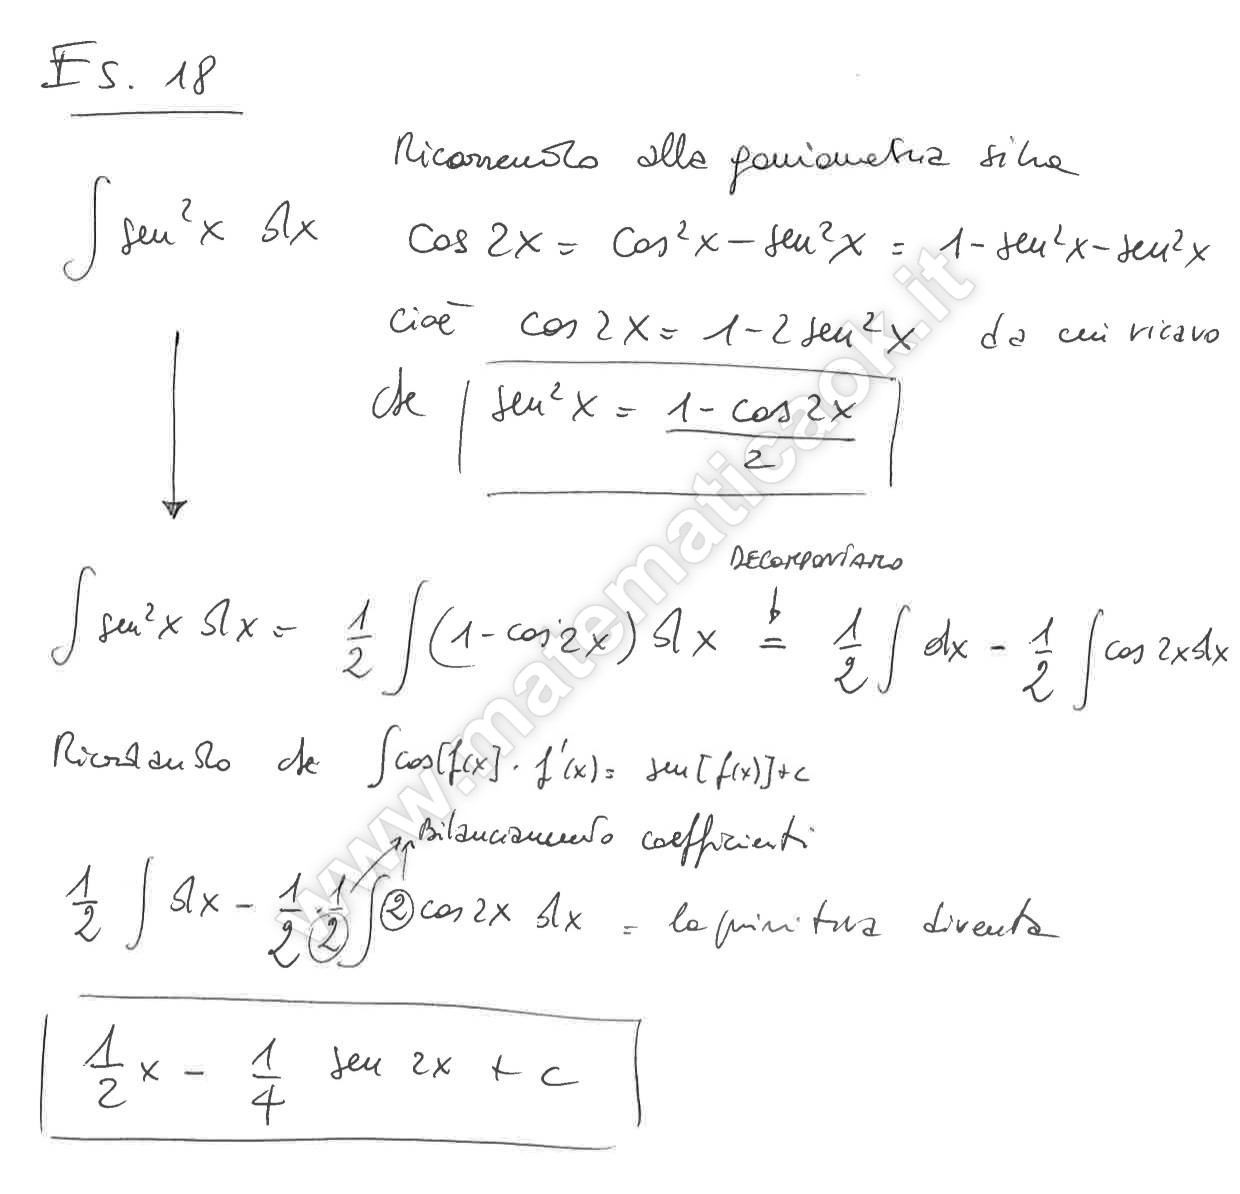 Es. 18
Ricorrendo alla goniometria si ha
∫ sen²x dx cos 2x = cos²x - sen²x = 1 - sen²x - sen²x
cioè cos 2x = 1 - 2 sen²x da cui ricavo
che sen²x = (1 - cos 2x)/2
DECOMPONIAMO
∫ sen²x dx = 1/2 ∫ (1 - cos 2x) dx = 1/2 ∫ dx - 1/2 ∫ cos 2x dx
Ricordando che ∫ cos[f(x)] · f'(x) = sen[f(x)] + c
Bilanciamento coefficienti
1/2 ∫ dx - 1/2 · 1/2 ∫ 2 cos 2x dx = la primitiva diventa
1/2 x - 1/4 sen 2x + c
www.matematicaok.it